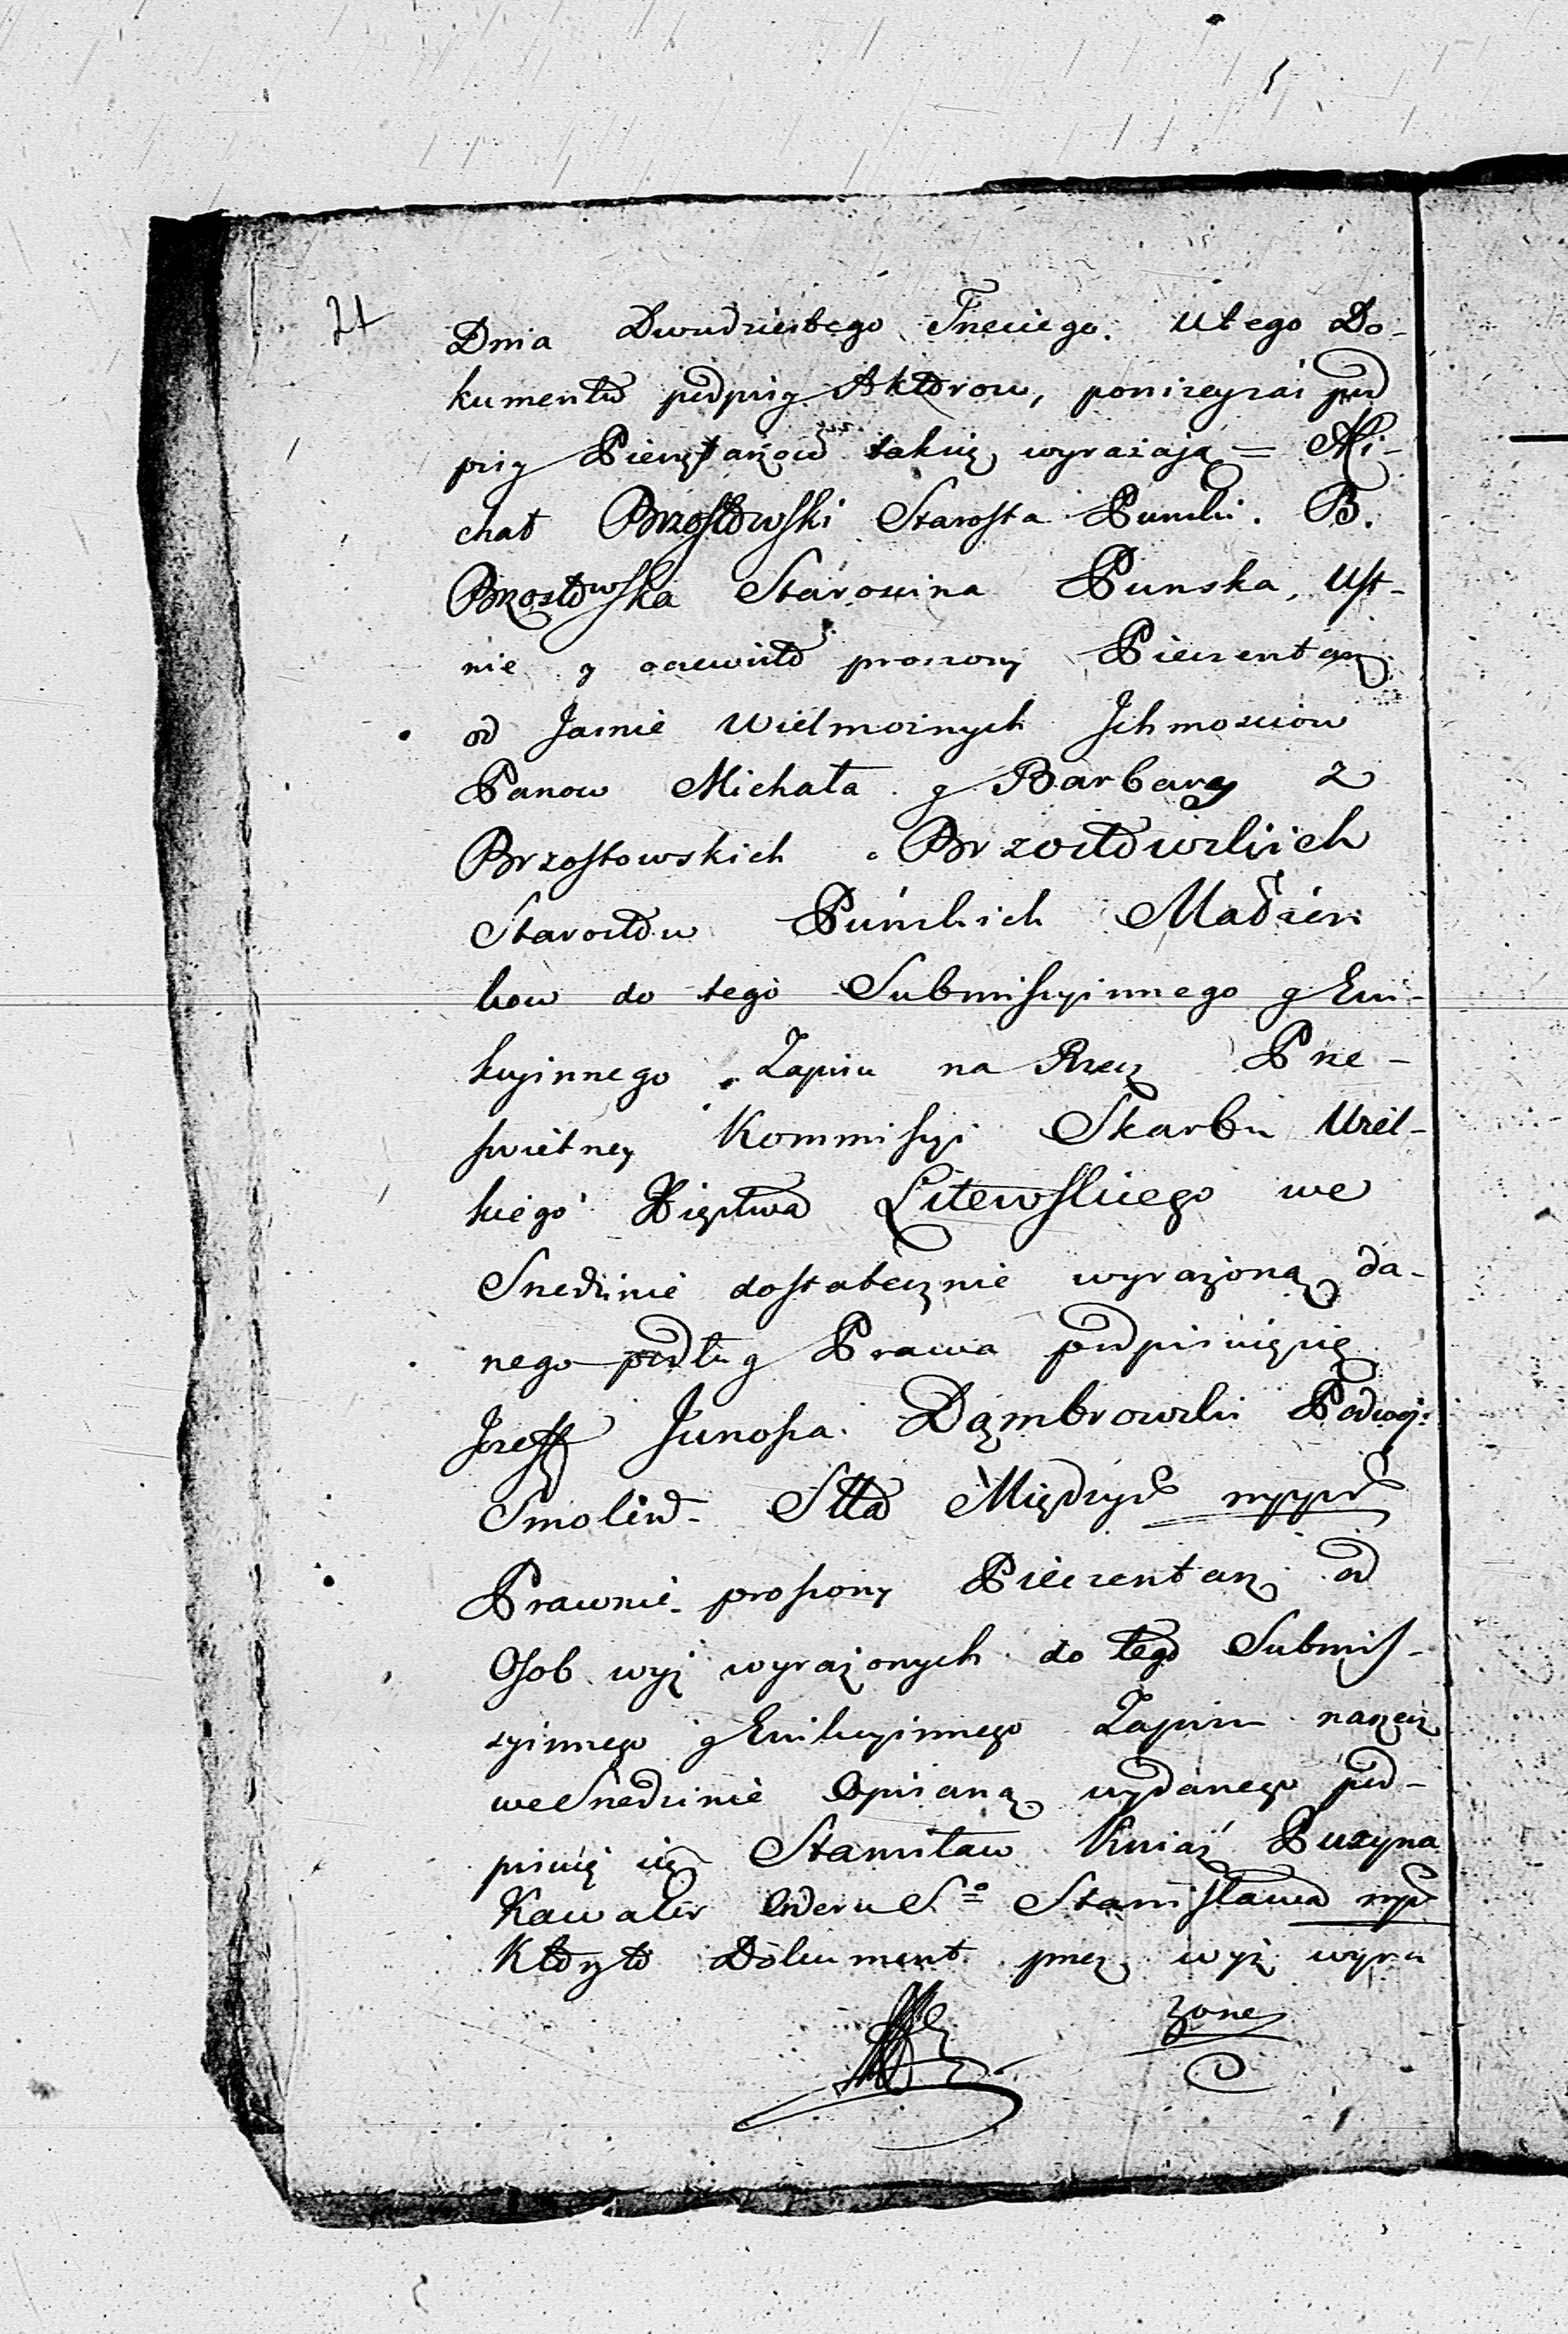 21
Dnia Dwudziestego Trzeciego. U tego Do-
kumentu podpisy Aktorow, ponizey zaś pod
pisy Pieczętarzow takie wyrażaią = Mi-
chał Brzostowski Starosta Puński. B.
Brzostowska Starościna Puńska, Ust-
nie y oczewisto proszony Pieczentarz
od Jasnie Wielmożnych Ichmosciow
Panow Michała y Barbary z
Brzostowskich Brzostowskich
Starostow Puńskich Małżen
kow do tego Submissyinnego y Ewi-
kcyinnego Zapisu na Rzecz Prze-
swietney Kommissyi Skarbu Wiel-
kiego Xięstwa Litewskiego we
Srzedzinie dostatecznie wyrażoną da-
nego podług Prawa podpisuię się
Jozeff Junosza Dąmbrowski Podwoj:
Smoleń- Stta Między: mppr
Prawnie proszony Pieczentarz od
Osob wyż wyrażonych do tego Submis-
syinnego y Ewikcyinnego Zapisu na rzecz
we Srzedzinie Opisaną wydanego pod-
pisuię się Stanisław Kniaź Puzyna
Kawaler Orderu So Stanisława mpr
Ktoryto Dokument przez wyż wyra
żone